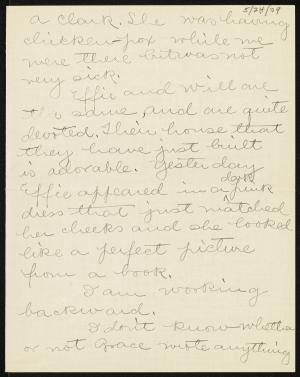 5/24/29
a clark. She was having
chicken-pox while we
were there but was not
very sick.
Effie and Will are
the same, and are quite
devoted. Their house that
they have just built
is adorable. Yesterday
Effie appeared in a dark pink
dress that just matched
her cheeks and she looked
like a perfect picture
from a book.
I am working
backward.
I don't know whether
or not Grace wrote anything